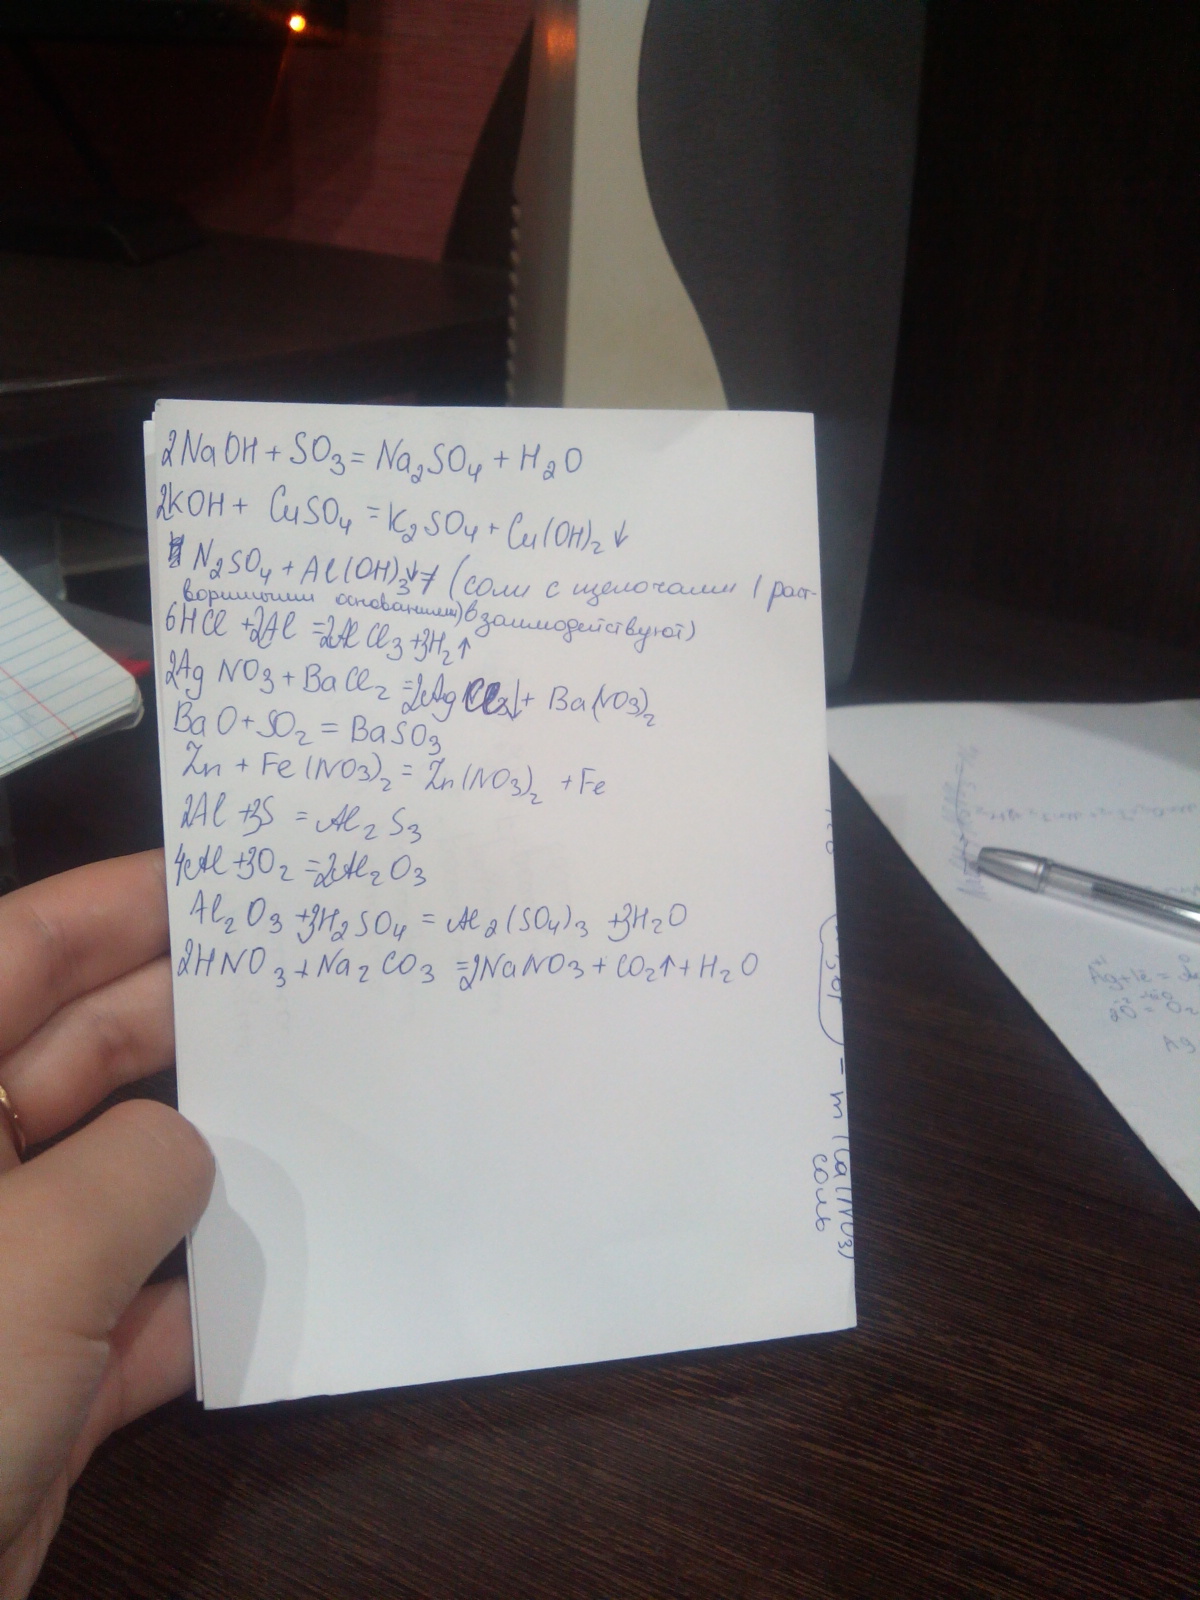 2NaOH + SO3 = Na2SO4 + H2O
2KOH + CuSO4 = K2SO4 + Cu(OH)2 ↓
N2SO4 + Al(OH)3↓ ≠ (соли с щелочами (раст-
воримыми основаниями) взаимодействуют)
6HCl + 2Al = 2AlCl3 + 3H2↑
2AgNO3 + BaCl2 = 2AgCl↓ + Ba(NO3)2
BaO + SO2 = BaSO3
Zn + Fe(NO3)2 = Zn(NO3)2 + Fe
2Al + 3S = Al2S3
4Al + 3O2 = 2Al2O3
Al2O3 + 3H2SO4 = Al2(SO4)3 + 3H2O
2HNO3 + Na2CO3 = 2NaNO3 + CO2↑ + H2O
= m (Ca(NO3)
соль